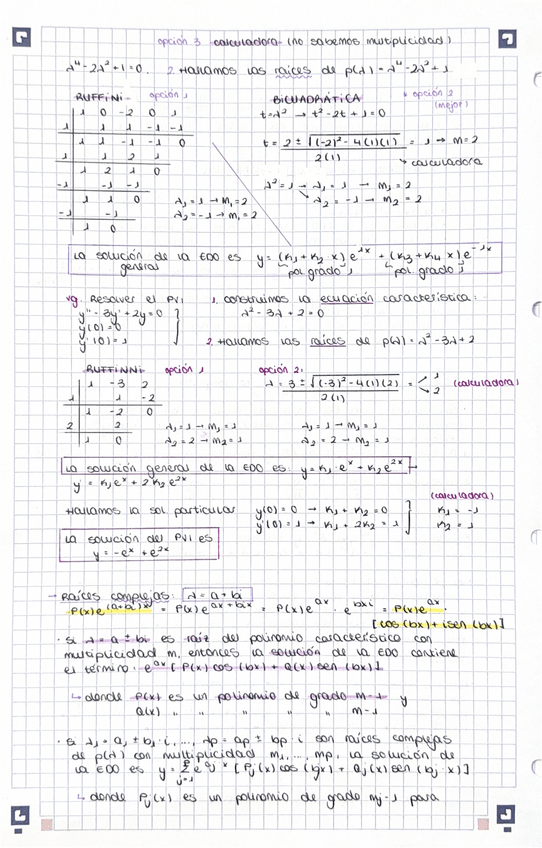 opción 3 calculadora (no sabemos multiplicidad)
λ⁴-2λ²+1=0. 2. Hallamos las raíces de p(λ)=λ⁴-2λ²+1
RUFFINI opción 1 BICUADRÁTICA → opción 2 (mejor)
1 0 -2 0 1
1 1 1 -1 -1
1 1 -1 -1 0
1 1 2 1
1 2 1 0
-1 -1 -1
1 1 0
-1 -1
1 0
λ₁=1→m₁=2
λ₂=-1→m₁=2
t=λ² → t²-2t+1=0
t = 2±√((-2)²-4(1)(1)) / 2(1) = 1 → m=2
↳ calculadora
λ²=1 → λ₁=1 → m₁=2
↘ λ₂=-1 → m₂=2
La solución de la EDO es y=(k₁+k₂ x)e^{1x} + (k₃+k₄ x)e^{-1x}
general pol grado 1 pol grado 1
vg. Resolver el PVI 1. Construimos la ecuación característica:
y''-3y'+2y=0 λ²-3λ+2=0
y(0)=0
y'(0)=1 2. Hallamos las raíces de p(λ)=λ²-3λ+2
RUFFINNI opción 1 opción 2:
1 -3 2
1 1 -2
1 -2 0
2 2
1 0
λ₁=1→m₁=1
λ₂=2→m₂=1
λ = 3±√((-3)²-4(1)(2)) / 2(1) = 1 2 (calculadora)
λ₁=1→m₁=1
λ₂=2→m₂=1
La solución general de la EDO es: y=k₁·e^x+k₂e^{2x}
y'=k₁e^x+2k₂e^{2x}
Hallamos la sol particular y(0)=0 → k₁+k₂=0
y'(0)=1 → k₁+2k₂=1
(calculadora)
k₁=-1
k₂=1
La solución del PVI es
y=-e^x+e^{2x}
→ Raíces complejas: λ=a+bi
P(x)e^{(a+bi)x} = P(x)e^{ax+bix} = P(x)e^{ax}·e^{bxi} = P(x)e^{ax}·
[cos(bx)+isen(bx)]
· Si λ=a±bi es raíz del polinomio característico con
multiplicidad m, entonces la solución de la EDO contiene
el término: e^{ax}[P(x)cos(bx)+Q(x)sen(bx)]
↳ donde P(x) es un polinomio de grado m-1 y
Q(x) " " " " m-1
· Si λ₁=a₁±b₁·i,..., λp=ap±bp·i son raíces complejas
de p(λ) con multiplicidad m₁,...,mp, la solución de
la EDO es y=Σ_{j=1}^{p} e^{aj x}[Pj(x)cos(bjx)+Qj(x)sen(bj·x)]
↳ donde Pj(x) es un polinomio de grado mj-1 para